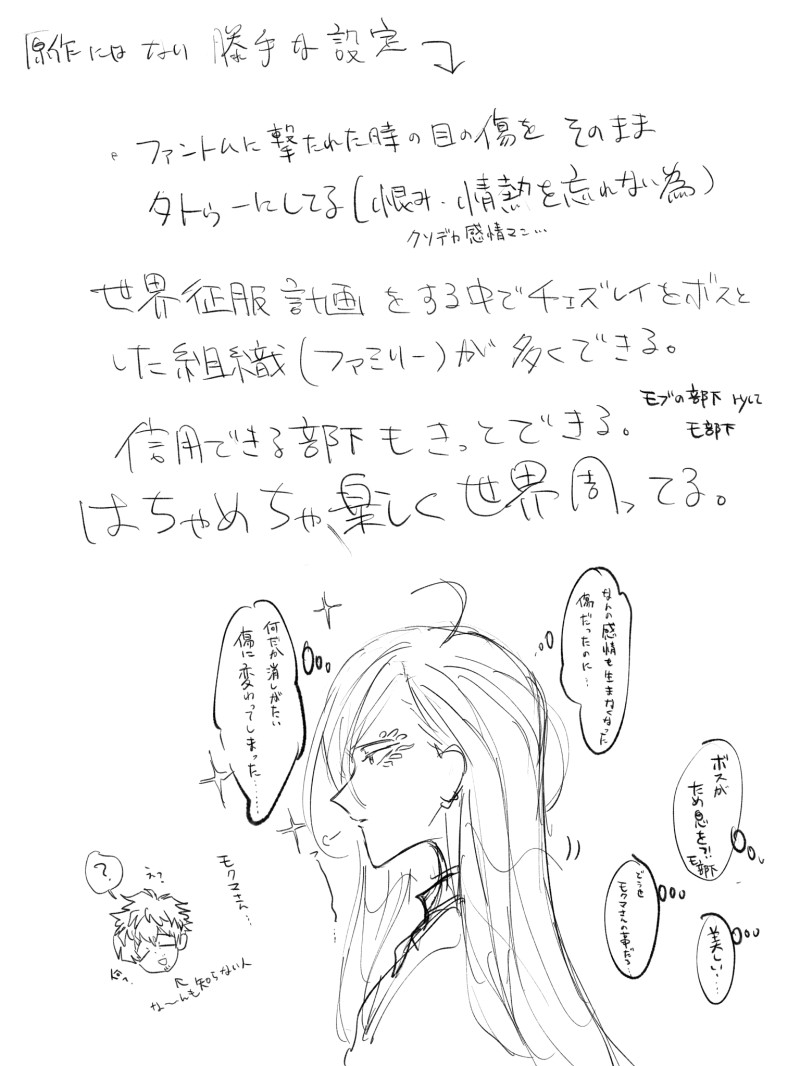 原作にはない勝手な設定
・ファントムに撃たれた時の目の傷を そのまま
タトゥーにしてる(恨み・情熱を忘れない為)
クソデカ感情マン…
世界征服計画をする中でチェズレイをボスと
した組織(ファミリー)が多くできる。
信用できる部下もきっとできる。
モブの部下 etc
モ部下
はちゃめちゃ楽しく世界周ってる。
なんの感情も生まなくなった
傷だったのに…
何だか消しがたい
傷に変わってしまった……
ボスが
ため息を?!
モ部下
どうせ
モクマさんの事だろ…
美しい…
モクマさん…
?
え?
な〜んも知らない人